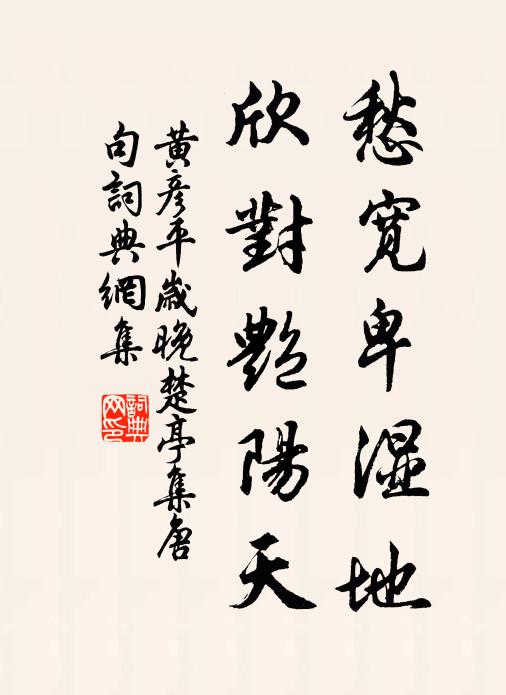 愁寬卑濕地
欣對艷陽天
黃彥平歲晚楚亭集唐
句詞典網集
詞典
网印